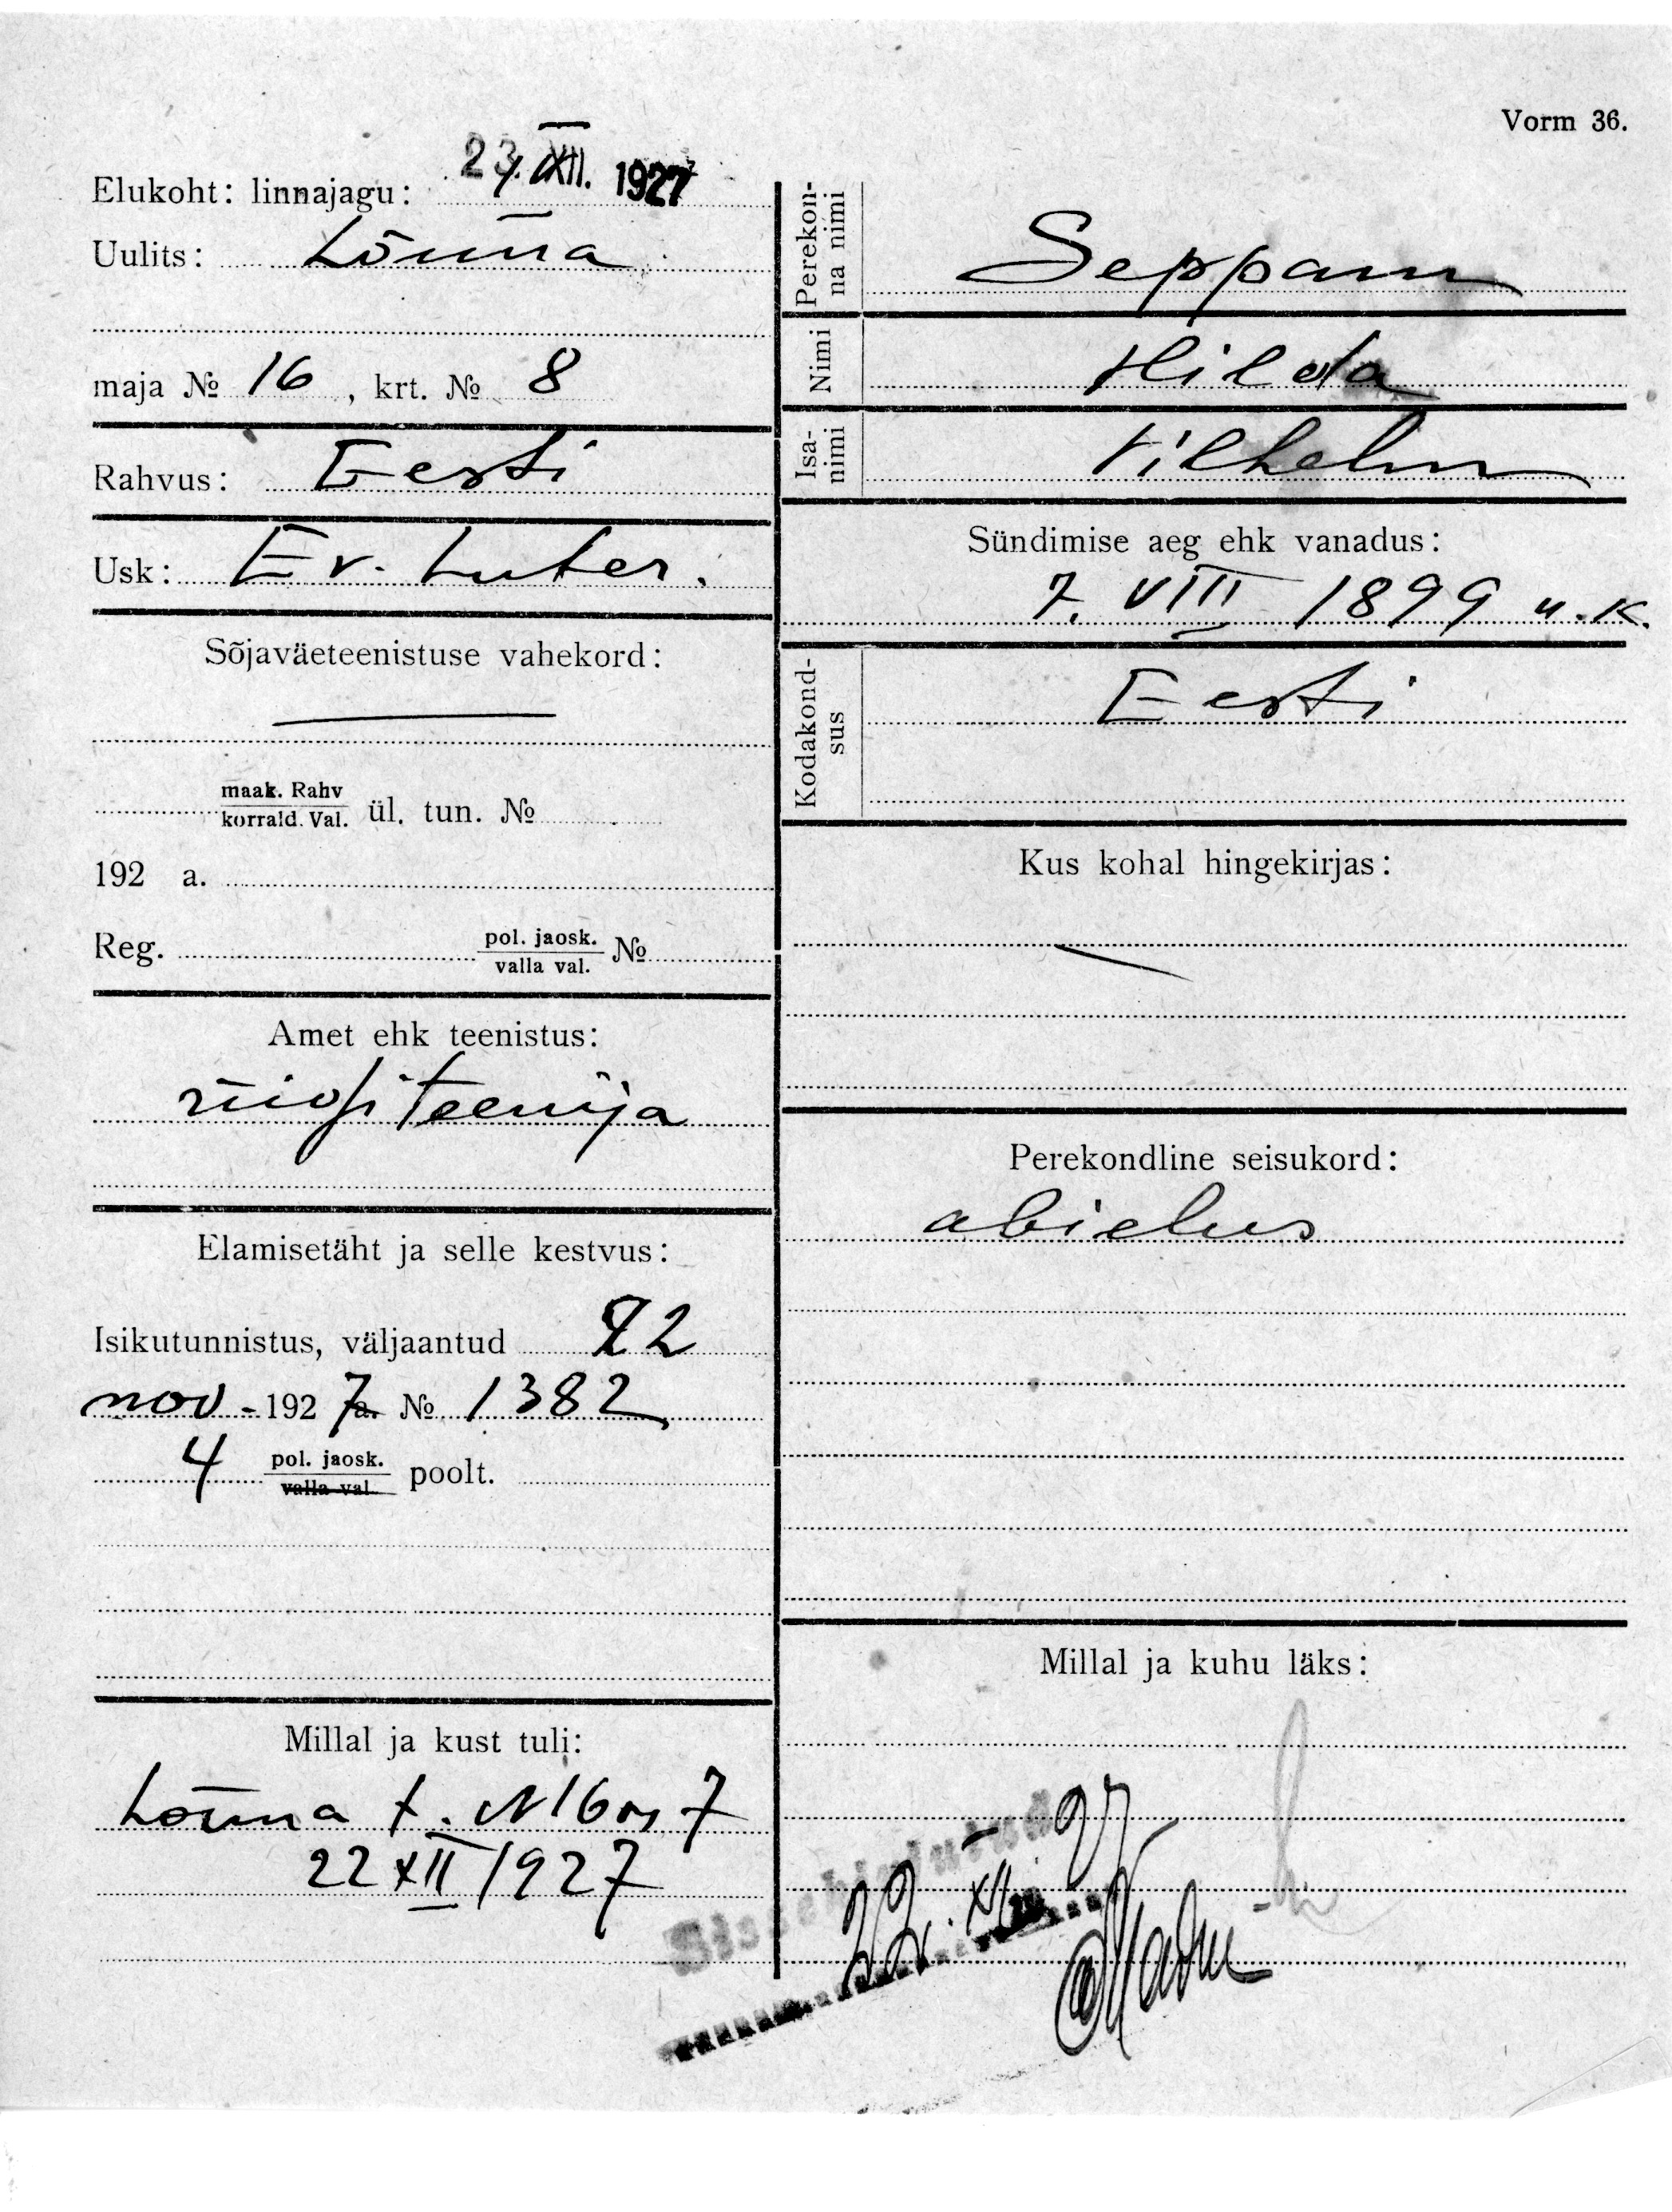 Vorm 36.
Elukoht: linnajagu: 23. XII. 1927
Uulits: Lõuna
maja № 16, krt. № 8
Rahvus: Eesti
Usk: Ev. Luter.
Sõjaväeteenistuse vahekord:
maak. Rahv
korrald. Val. ül. tun. №
192 a.
Reg. pol. jaosk.
valla val. №
Amet ehk teenistus:
riigi teenija
Elamisetäht ja selle kestvus:
Isikutunnistus, väljaantud 22
nov - 192 7 a. № 1382
4 pol. jaosk.
valla val. poolt.
Millal ja kust tuli:
Lõuna t. N 16 7
22 XII 1927
Perekon-
na nimi
Seppam
Nimi
Hilda
Isa-
nimi
Vilhelm
Sündimise aeg ehk vanadus:
7. VIII 1899 u.k.
Kodakond-
sus
Eesti
Kus kohal hingekirjas:
Perekondline seisukord:
abielus
Millal ja kuhu läks:
XII 27